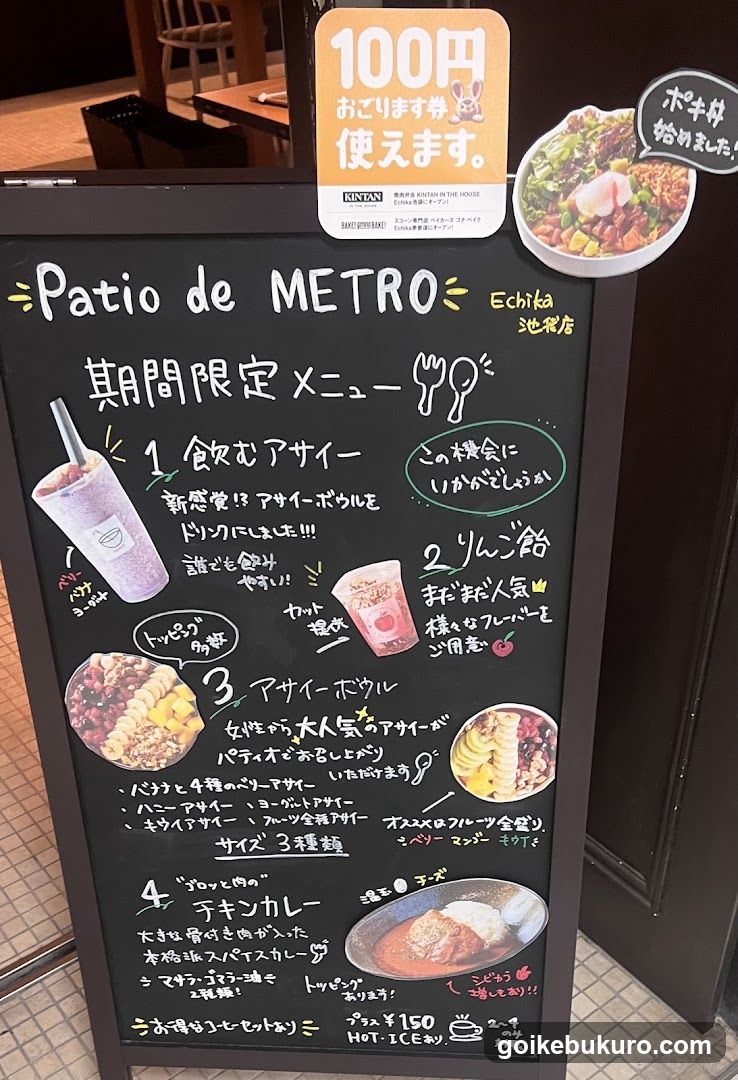 100円
おごります券
使えます。
KINTAN
IN THE HOUSE
焼肉弁当 KINTAN IN THE HOUSE
Echika池袋にオープン!
BAKE! GONNA BAKE!
スコーン専門店 ベイカーズ ゴナ ベイク
Echika表参道にオープン!
ポキ丼
始めました!
Patio de METRO
Echika
池袋店
期間限定メニュー
1 飲むアサイー
この機会に
いかがでしょうか
新感覚!? アサイーボウルを
ドリンクにしました!!!
誰でも飲み
やすい!
ベリー
バナナ
ヨーグルト
2 りんご飴
まだまだ人気
様々なフレーバーを
ご用意
カット
提供
トッピング
多数
3 アサイーボウル
女性から大人気のアサイーが
パティオでお召し上がり
いただけます
・バナナと4種のベリーアサイー
・ハニーアサイー ・ヨーグルトアサイー
・キウイアサイー ・フルーツ全種アサイー
サイズ3種類
オススメはフルーツ全盛り。
ベリー マンゴー キウイ
4 "ゴロッと肉の"
チキンカレー
温玉 チーズ
大きな骨付き肉が入った
本格派スパイスカレー
マサラ・ゴマラー油
2種類!
トッピング
あります!
シビカラ
増しもあり!!
お得なコーヒーセットあり
プラス ¥150
HOT・ICEあり。
2〜4
goikebukuro.com